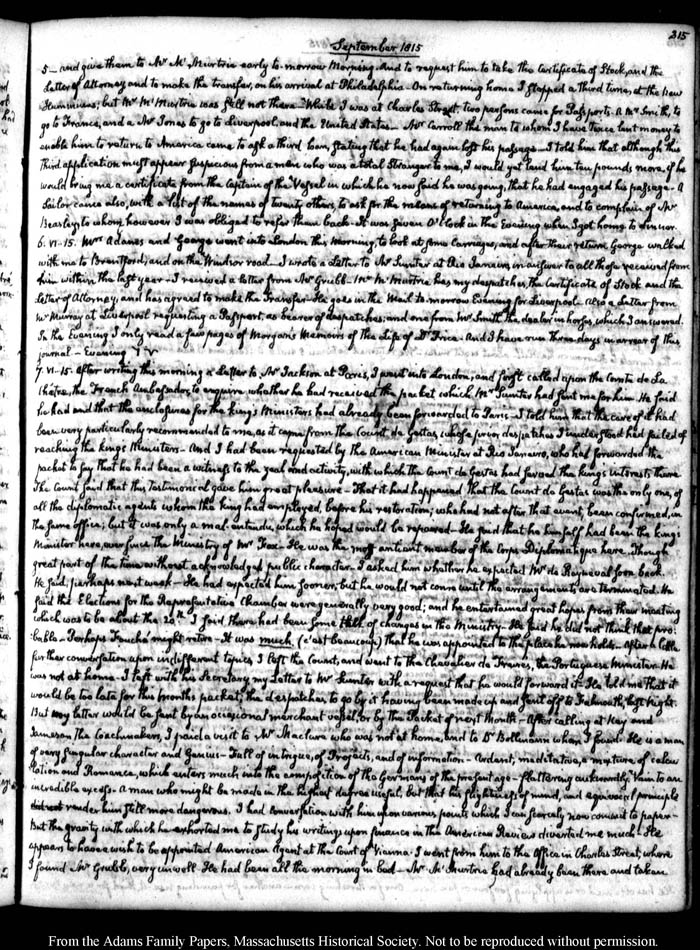 215
September 1815
5_ and give them to Mr McMurtrie early to-morrow Morning. And to request him to take the Certificate of Stock, and the
Letter of Attorney and to make the transfer, on his arrival at Philadelphia. On returning home I stopped a third time, at the New
Hummums; but Mr McMurtrie was still not there. While I was at Charles Street, two persons came for Passports. A Mr Smith, to
go to France, and a Mr Jones to go to Liverpool, and the United States_ Mr Carroll the man to whom I have twice lent money to
enable him to return to America came to ask a third loan, stating that he had again lost his passage_ I told him that although this
third application must appear suspicious from a man who was a total Stranger to me, I would yet lend him ten pounds more, if he
would bring me a certificate from the Captain of the Vessel in which he now said he was going, that he had engaged his passage_ A
Sailor came also, with a list of the names of twenty others, to ask for the means of returning to America, and to complain of Mr
Beasley; to whom, however I was obliged to refer them back. It was seven O'Clock in the Evening when I got home to dinner.
6. VI-15. Mrs Adams and George went into London this Morning, to look at some Carriages, and after their return George walked
with me to Brentford, and on the Windsor road_ I wrote a Letter to Mr Sumter at Rio Janeiro, in answer to all those received from
him within the last year_ I received a letter from Mr Grubb_ Mr McMurtrie has my despatches, the Certificate of Stock and the
Letter of Attorney, and has agreed to make the Transfer. He goes in the Mail to-morrow Evening for Liverpool. Also a Letter from
Mr Murray at Liverpool requesting a Passport, as bearer of despatches; and one from Mr Smith the dealer in horses, which I answered.
In the Evening I only read a few pages of Morgan's Memoirs of the Life of Dr Price. And I have run three days in arrear of this
journal_ Evening
7. VI-15. After writing this morning a Letter to Mr Jackson at Paris, I went into London, and first called upon the Comte de La
Châtre, the French Ambassador, to enquire whether he had received the packet which Mr Sumter had sent me for him. He said
he had and that the enclosures for the king's Ministers had already been forwarded to Paris_ I told him that the care of it had
been very particularly recommended to me, as it came from the Count de Gestas, whose prior despatches I understood had failed of
reaching the kings Ministers_ And I had been requested by the American Minister at Rio Janeiro, who had forwarded the
packet to say that he had been a witness to the zeal and activity, with which the Count de Gestas had served the king's interests there
The Count said that this testimonial gave him great pleasure_ That it had happened that the Count de Gestas was the only one, of
all the diplomatic agents whom the king had employed, before his restoration, who had not after that event, been confirmed, in
the same office; but it was only a mal-entendu, which he hoped would be repaired_ He said that he himself had been the kings
Minister here, ever since the Ministry of Mr Fox_ He was the most antient member of the Corps Diplomatique here, though
great part of the time without acknowledged public character_ I asked him whether he expected Mr de Rayneval soon back.
He said, perhaps next week_ He had expected him sooner, but he would not come until the arrangements are terminated. He
said the Elections for the Representative Chamber were generally very good; and he entertained great hopes from their meeting
which was to be about the 20th. I said there had been some talk of changes in the Ministry_ He said he did not think that pro-
bable_ Perhaps Fouché might retire_ It was much, (c'est beaucoup) that he was appointed to the place he now holds. After a little
further conversation upon indifferent topics, I left the Count, and went to the Chevalier de Freires, the Portuguese Minister. He
was not at home. I left with his Secretary my Letter to Mr Sumter with a request that he would forward it. He told me that it
would be too late for this months packet, the despatches to go by it having been made up and sent off to Falmouth, last night.
But my letter would be sent by an occasional merchant vessel, or by the Packet of next Month_ After calling at Key and
Jameson the Coachmakers, I paid a visit to Mr Maclure who was not at home, and to Dr Bollmann whom I found. He is a man
of very singular character and Genius_ Full of intrigue, of Projects, and of information_ Ardent, meditative, a mixture of calcu-
lation and Romance, which enters much into the composition of the Germany of the present age_ flattering awkwardly. Vain to an
incredible excess. A man who might be made in the highest degree useful, but that his flightiness of mind, and equivocal principle
render him still more dangerous. I had conversation with him upon various points which I can scarcely now commit to paper_
But the gravity with which he exhorted me to study his writings upon finance in the American Review diverted me much_ He
appears to have a wish to be appointed American Agent at the Court of Vienna. I went from him to the Office in Charles Street, where
I found Mr Grubb, very unwell. He had been all the morning in bed_ Mr McMurtrie had already been there and taken
From the Adams Family Papers, Massachusetts Historical Society. Not to be reproduced without permission.